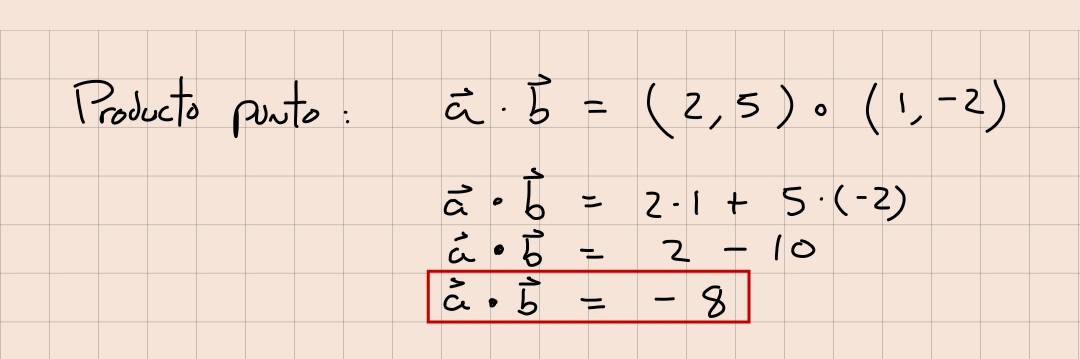 Producto punto: a⃗ · b⃗ = (2,5) ∘ (1,-2)
a⃗ • b⃗ = 2·1 + 5·(-2)
a⃗ • b⃗ = 2 - 10
a⃗ • b⃗ = - 8